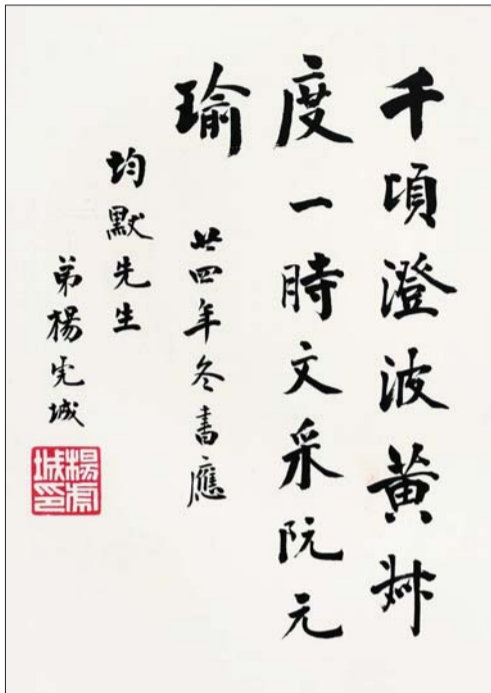 千頃澄波黄叔
度一時文采阮元
瑜 廿四年冬書應
均默先生
弟楊虎城
楊虎城印